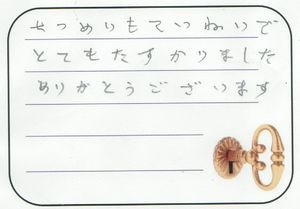 せつめいもていねいで
とてもたすかりました
ありがとうございます